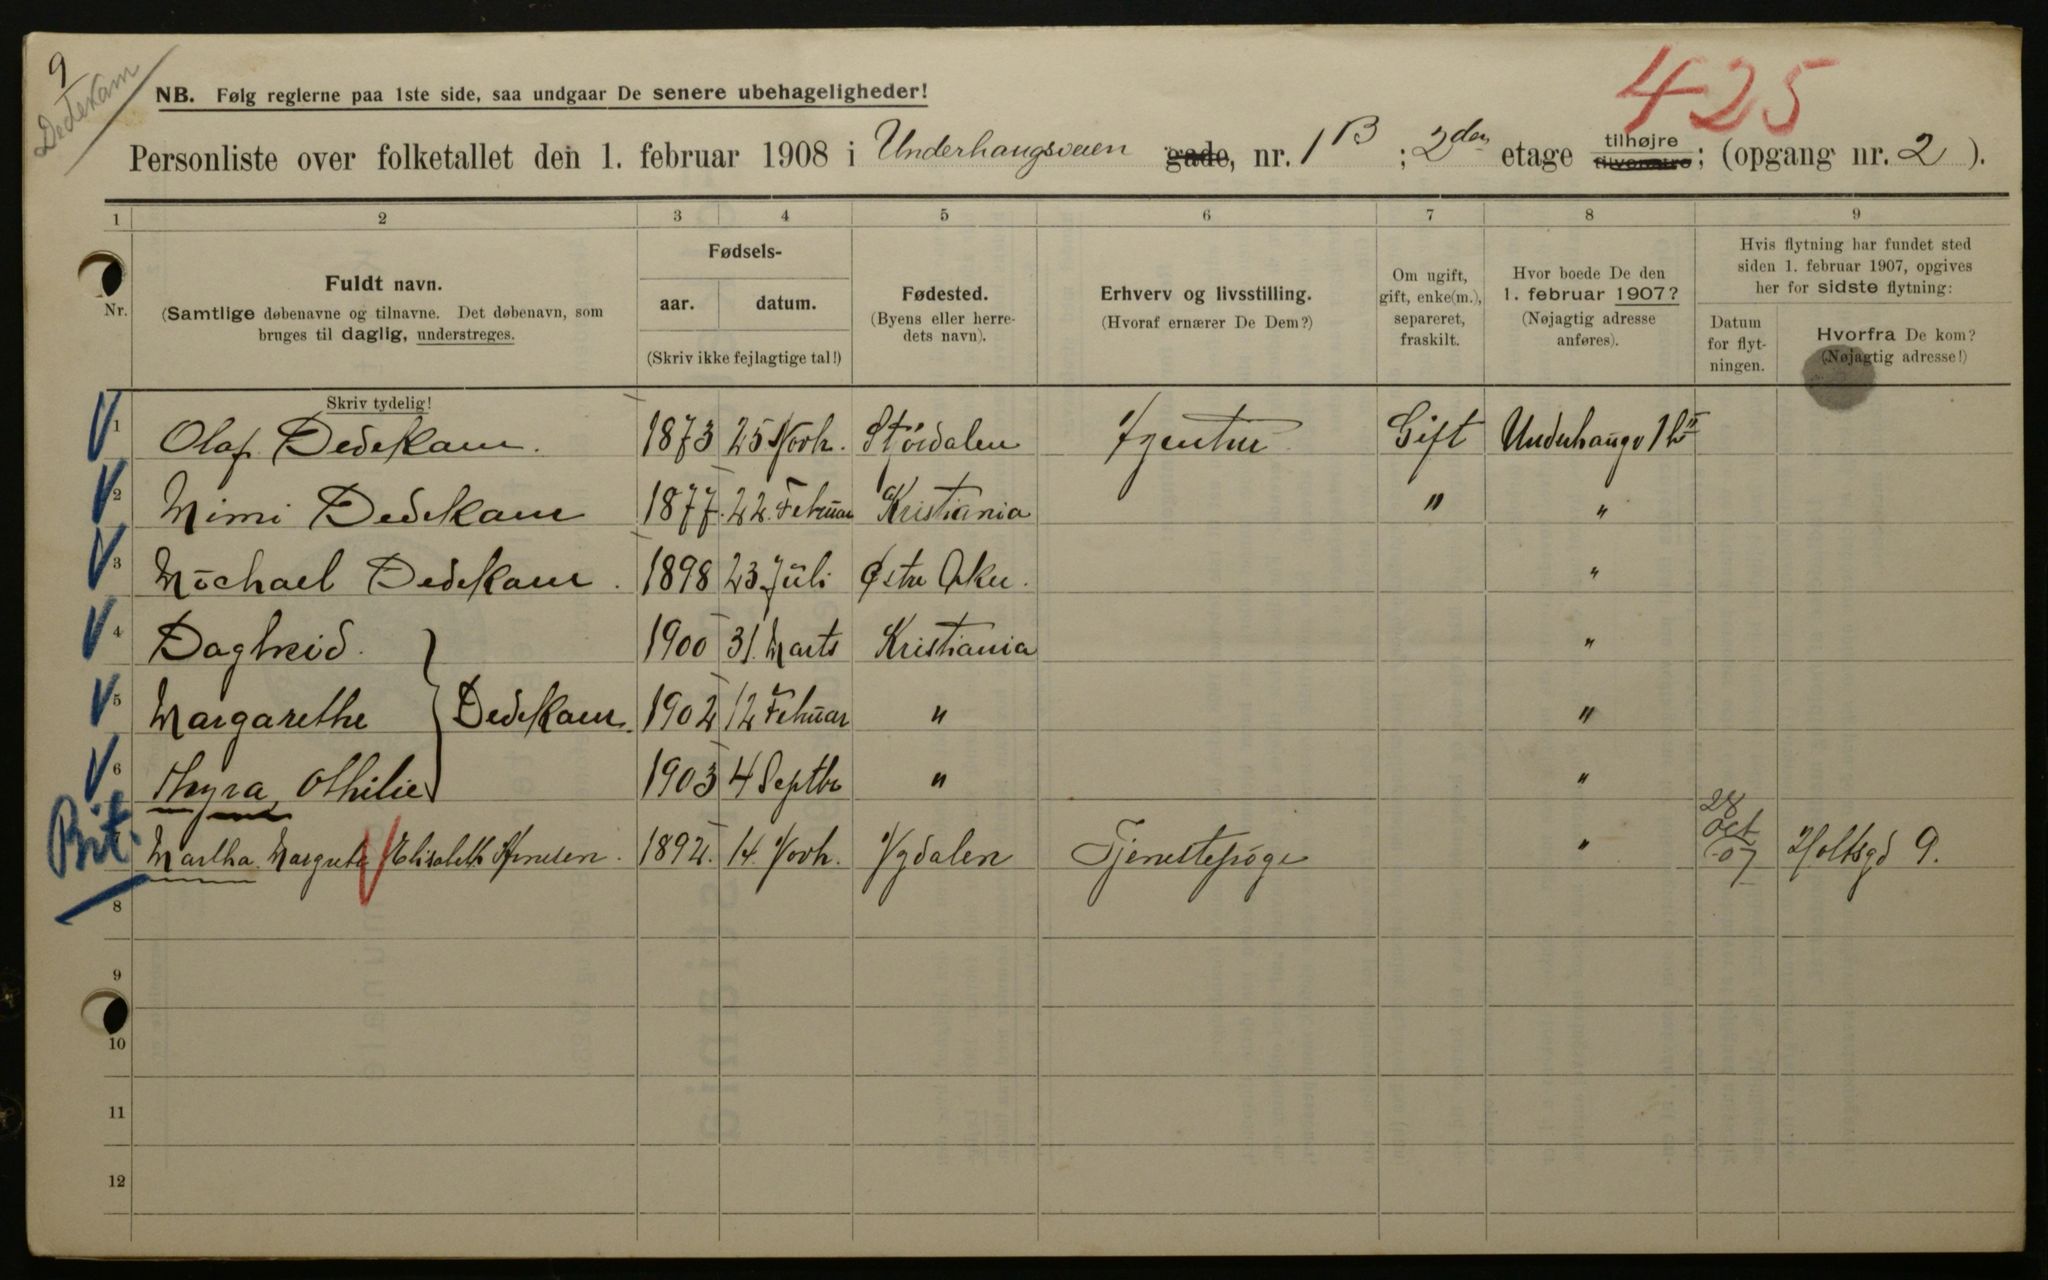 9
Dedekam
425
NB. Følg reglerne paa 1ste side, saa undgaar De senere ubehageligheder!
Personliste over folketallet den 1. februar 1908 i Underhaugsveien gade, nr. 1B ; 2den etage tilhøjre tilvenstre ; (opgang nr. 2 ).
1 2 3 4 5 6 7 8 9
Nr.
Fuldt navn.
(Samtlige døbenavne og tilnavne. Det døbenavn, som
bruges til daglig, understreges.
Skriv tydelig!
Fødsels-
aar. datum.
(Skriv ikke fejlagtige tal!)
Fødested.
(Byens eller herre-
dets navn).
Erhverv og livsstilling.
(Hvoraf ernærer De Dem?)
Om ugift,
gift, enke(m.),
separeret,
fraskilt.
Hvor boede De den
1. februar 1907?
(Nøjagtig adresse
anføres).
Hvis flytning har fundet sted
siden 1. februar 1907, opgives
her for sidste flytning:
Datum
for flyt-
ningen.
Hvorfra De kom?
(Nøjagtig adresse!)
1 Olaf Dedekam. 1873 25 Novb. Størdalen Agentur Gift Underhaugv 1b II
2 Mimi Dedekam 1877. 22. Februar Kristiania " "
3 Michael Dedekam. 1898 23 Juli Østre Aker. "
4 Dagbrid. 1900 31. Marts Kristiania "
5 Margarethe } Dedekam. 1902 12 Februar " "
6 Thyra Othilie 1903 4 Septbr " "
Bit. Martha Margrete Elisabeth 1892. 14. Novb. Tjenestepige " 28 Oct 07 Holtsgd 9.
8
9
10
11
12